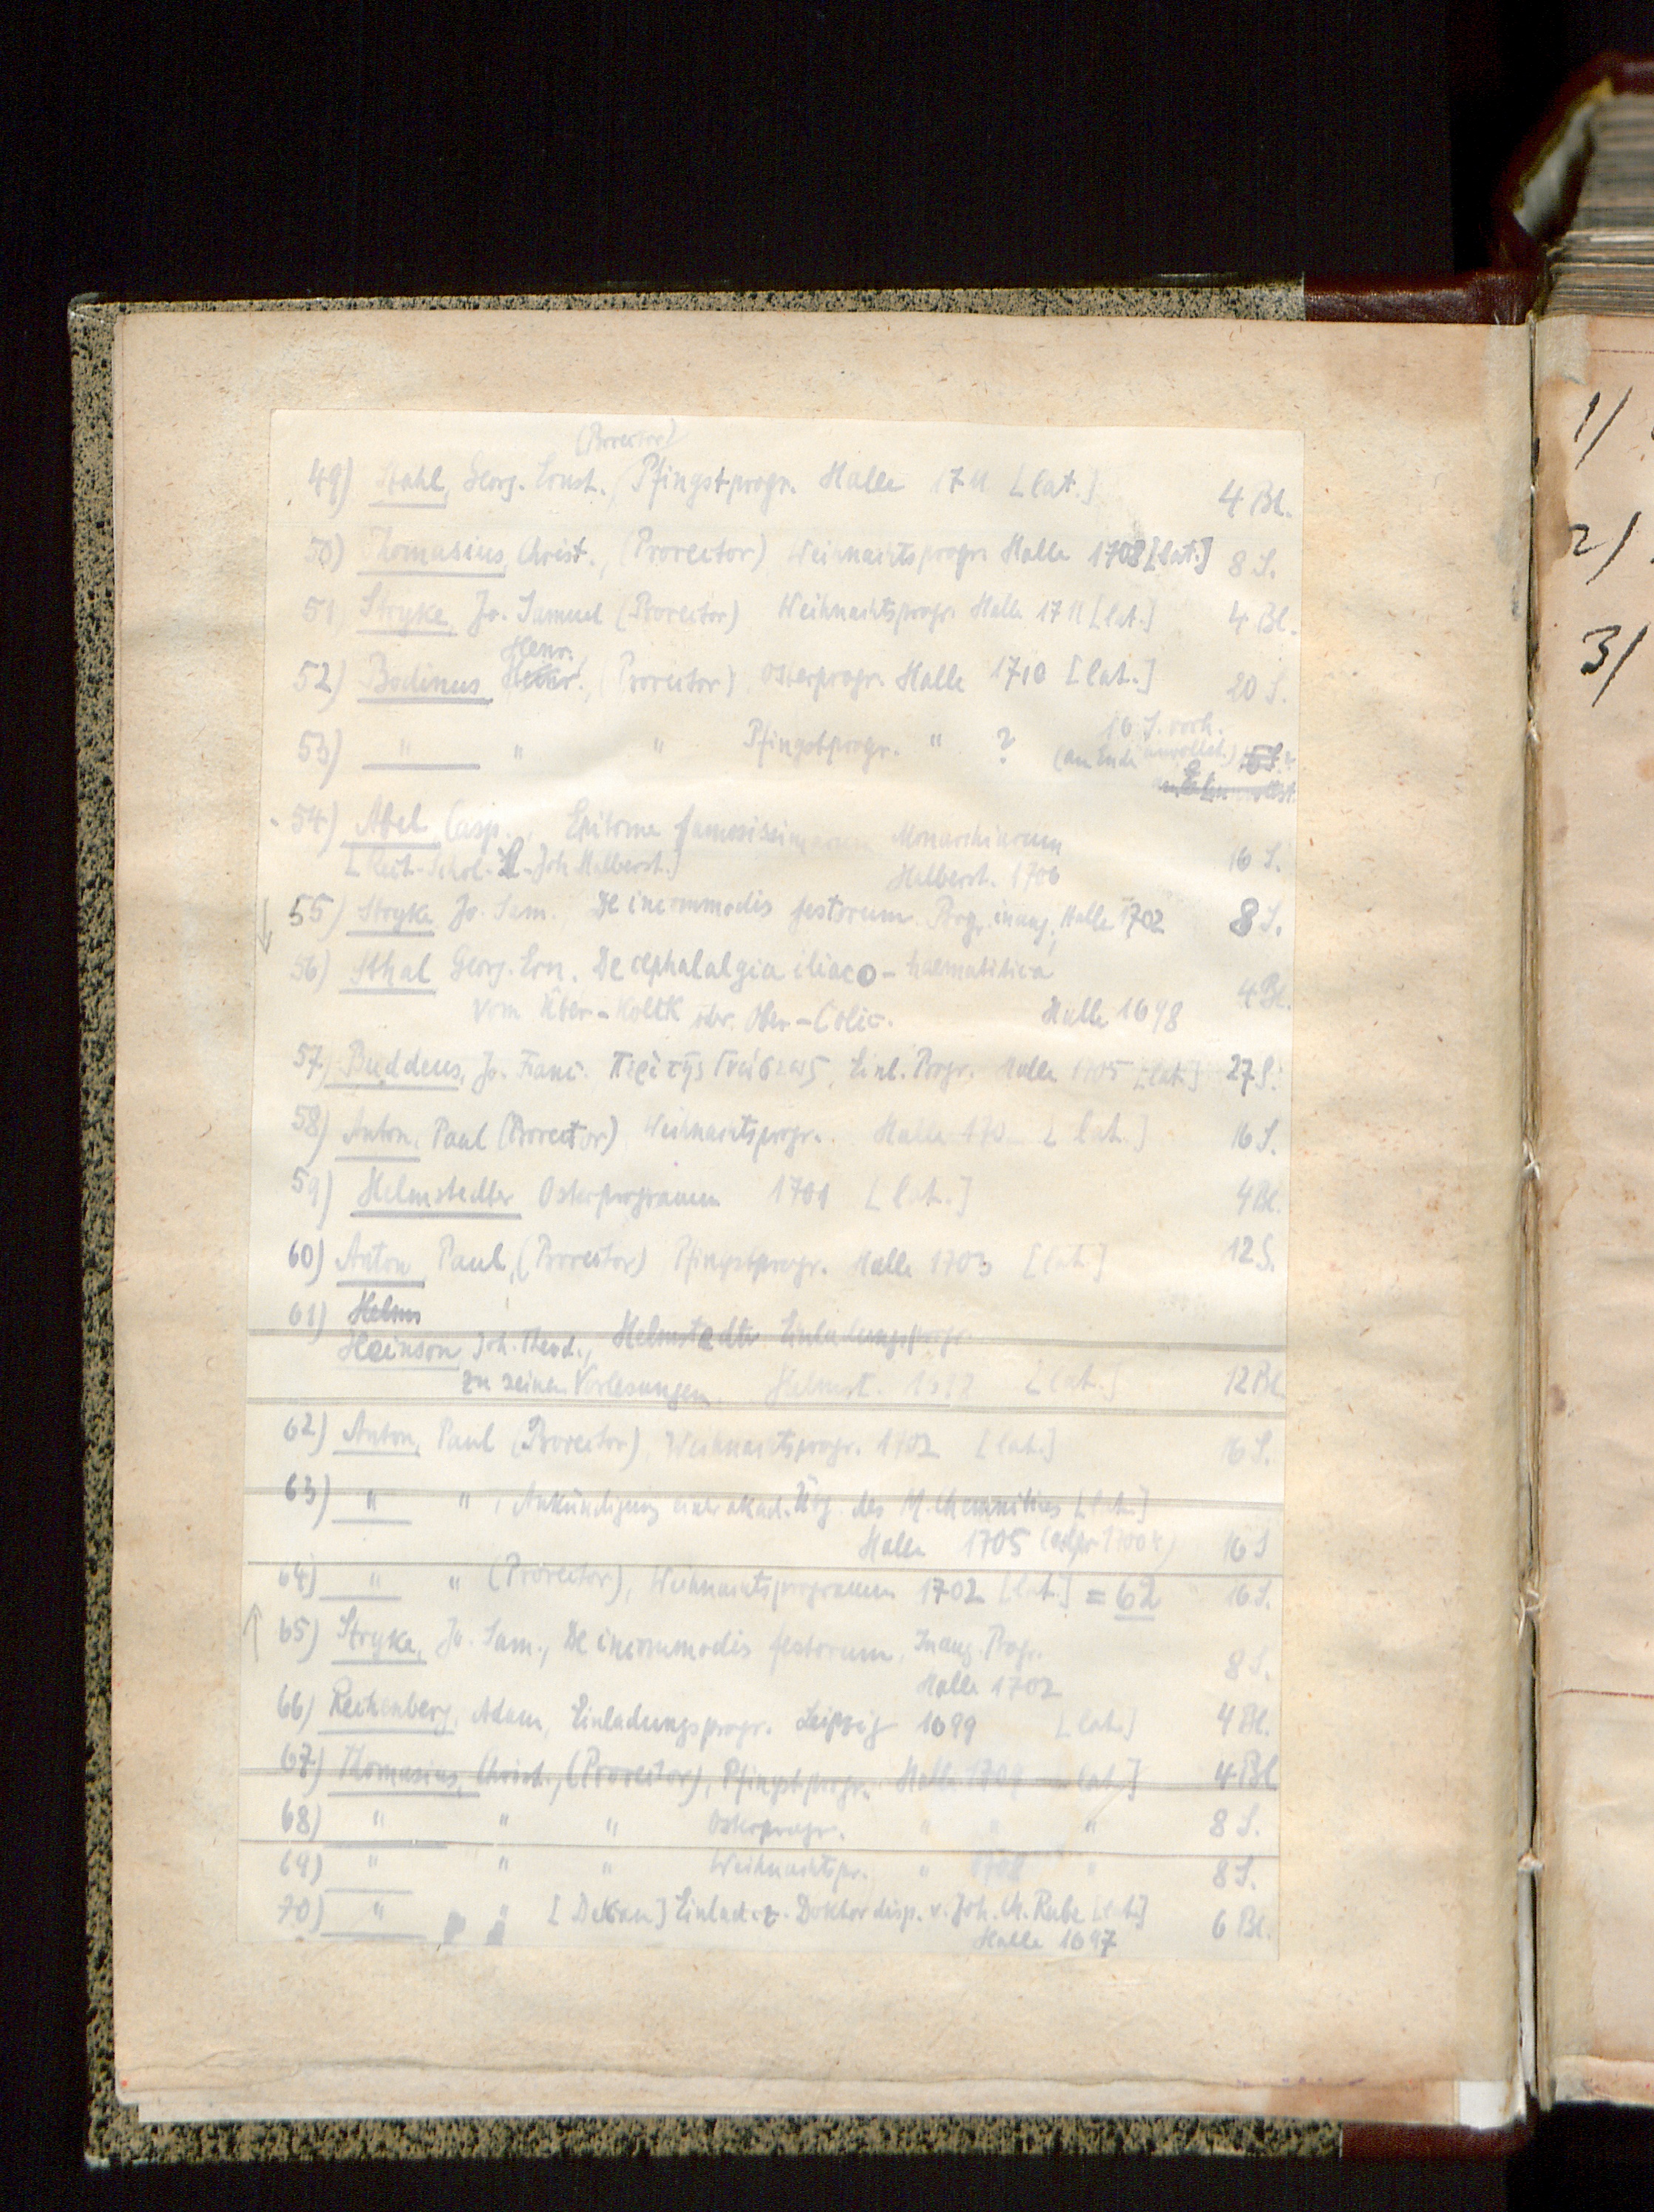 (Prorector)
49) Stahl, Georg. Ernst., Pfingstprogr. Halle 1711 [lat.] 4 Bl.
50) Thomasius, Christ., (Prorector) Weihnachtsprogr. Halle 1708 [lat.] 8 S.
51) Stryke, Jo. Samuel (Prorector) Weihnachtsprogr. Halle 1711 [lat.] 4 Bl.
Henr.
52) Bodinus, (Prorector) Osterprogr. Halle 1710 [lat.] 20 S.
16 S. vorh.
53) " " " Pfingstprogr. " ? (am Ende unvollst.)
54) Abel, Casp., Epitome famosissimarum Monarchiarum
[Rect. Schol. Joh. Halberst.] Halberst. 1706 16 S.
55) Stryke Jo. Sam., De incommodis festorum. Progr. inaug., Halle 1702 8 S.
56) Sthal Georg. Ern. De cephalalgia iliaco-haematitica
vom Über-Kolik Ober-Colic. Halle 1698 4 Bl.
57) Buddeus, Jo. Franc. Einl. Progr. Halle 1705 [lat.] 27 S.
58) Anton, Paul (Prorector) Weihnachtsprogr. Halle 170_ [lat.] 16 S.
59) Helmstedter Osterprogramm 1701 [lat.] 4 Bl.
60) Anton Paul, (Prorector) Pfingstprogr. Halle 1703 [lat.] 12 S.
61) Helms
Heinson Joh. Theod., Helmstedter Einladungsprogr.
zu seinen Vorlesungen. Helmst. [lat.] 12 Bl.
62) Anton, Paul (Prorector), Weihnachtsprogr. 1702 [lat.] 16 S.
63) " ", Ankündigung einer akad. des M. Chemnitius [lat.]
Halle 1705 16 S
64) " " (Prorector), Weihnachtsprogramm 1702 [lat.] = 62 16 S.
65) Stryke, Jo. Sam., De incommodis festorum, Inaug. Progr.
Halle 1702 8 S.
66) Rechenberg, Adam, Einladungsprogr. Leipzig 1699 [lat.] 4 Bl.
67) Thomasius, Christ., (Prorector), Pfingstprogr. Halle 1709 [lat.] 4 Bl
68) " " " Osterprogr. " " " 8 S.
69) " " " Weihnachtspr. " 1708 " 8 S.
70) " " [Dekan] Einlad. z. Doktordisp. v. Joh. Ch. Rube [lat.]
Halle 1697 6 Bl.
1)
2)
3)